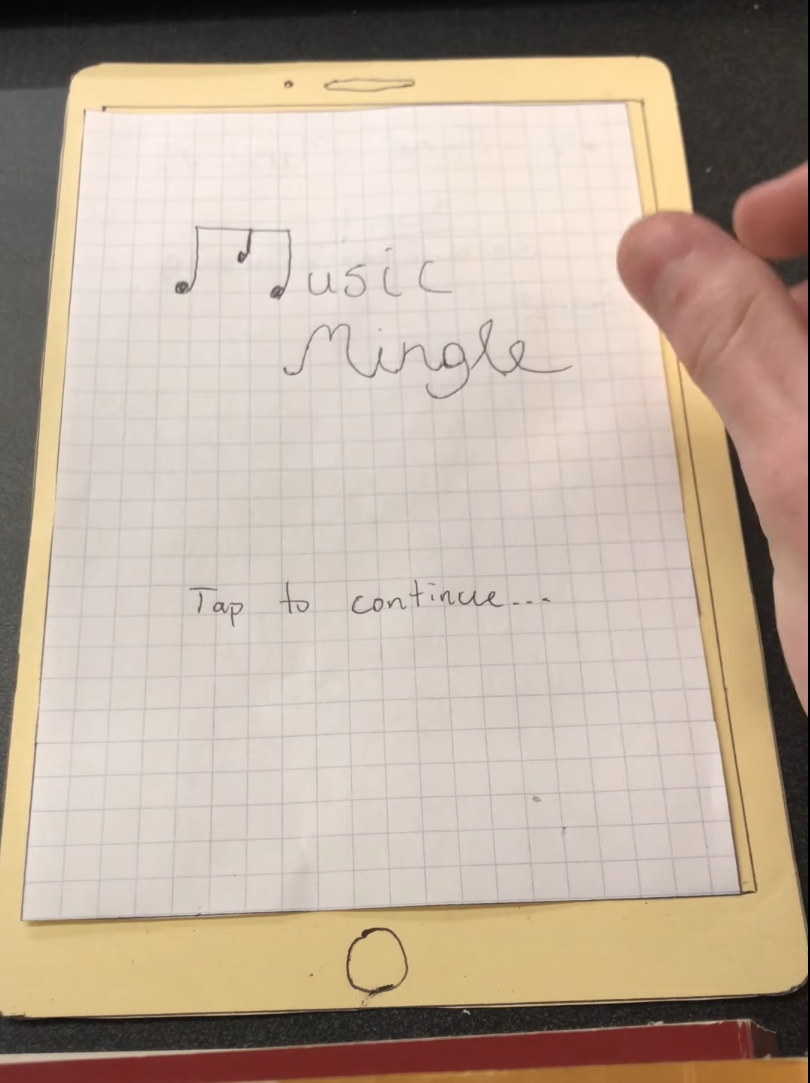 Music
Mingle
Tap to continue...